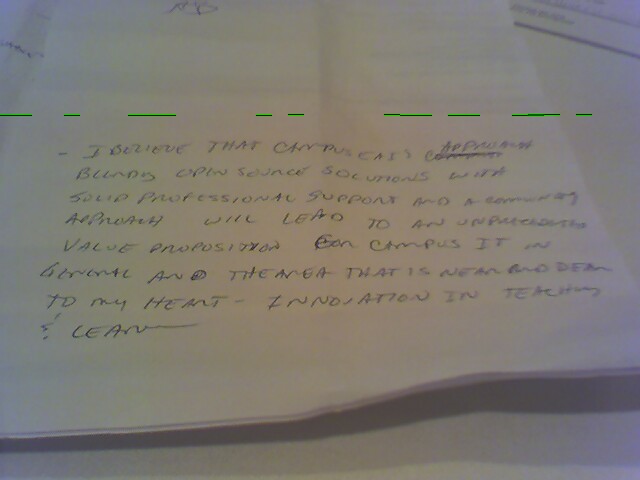 - I BELIEVE THAT CAMPUS EAI'S APPROACH
BLENDS OPEN SOURCE SOLUTIONS WITH
SOLID PROFESSIONAL SUPPORT AND A COMMUNITY
APPROACH WILL LEAD TO AN UNPRECEDENTED
VALUE PROPOSITION FOR CAMPUS IT IN
GENERAL AND THE AREA THAT IS NEAR AND DEAR
TO MY HEART - INNOVATION IN TEACHING
& LEARN